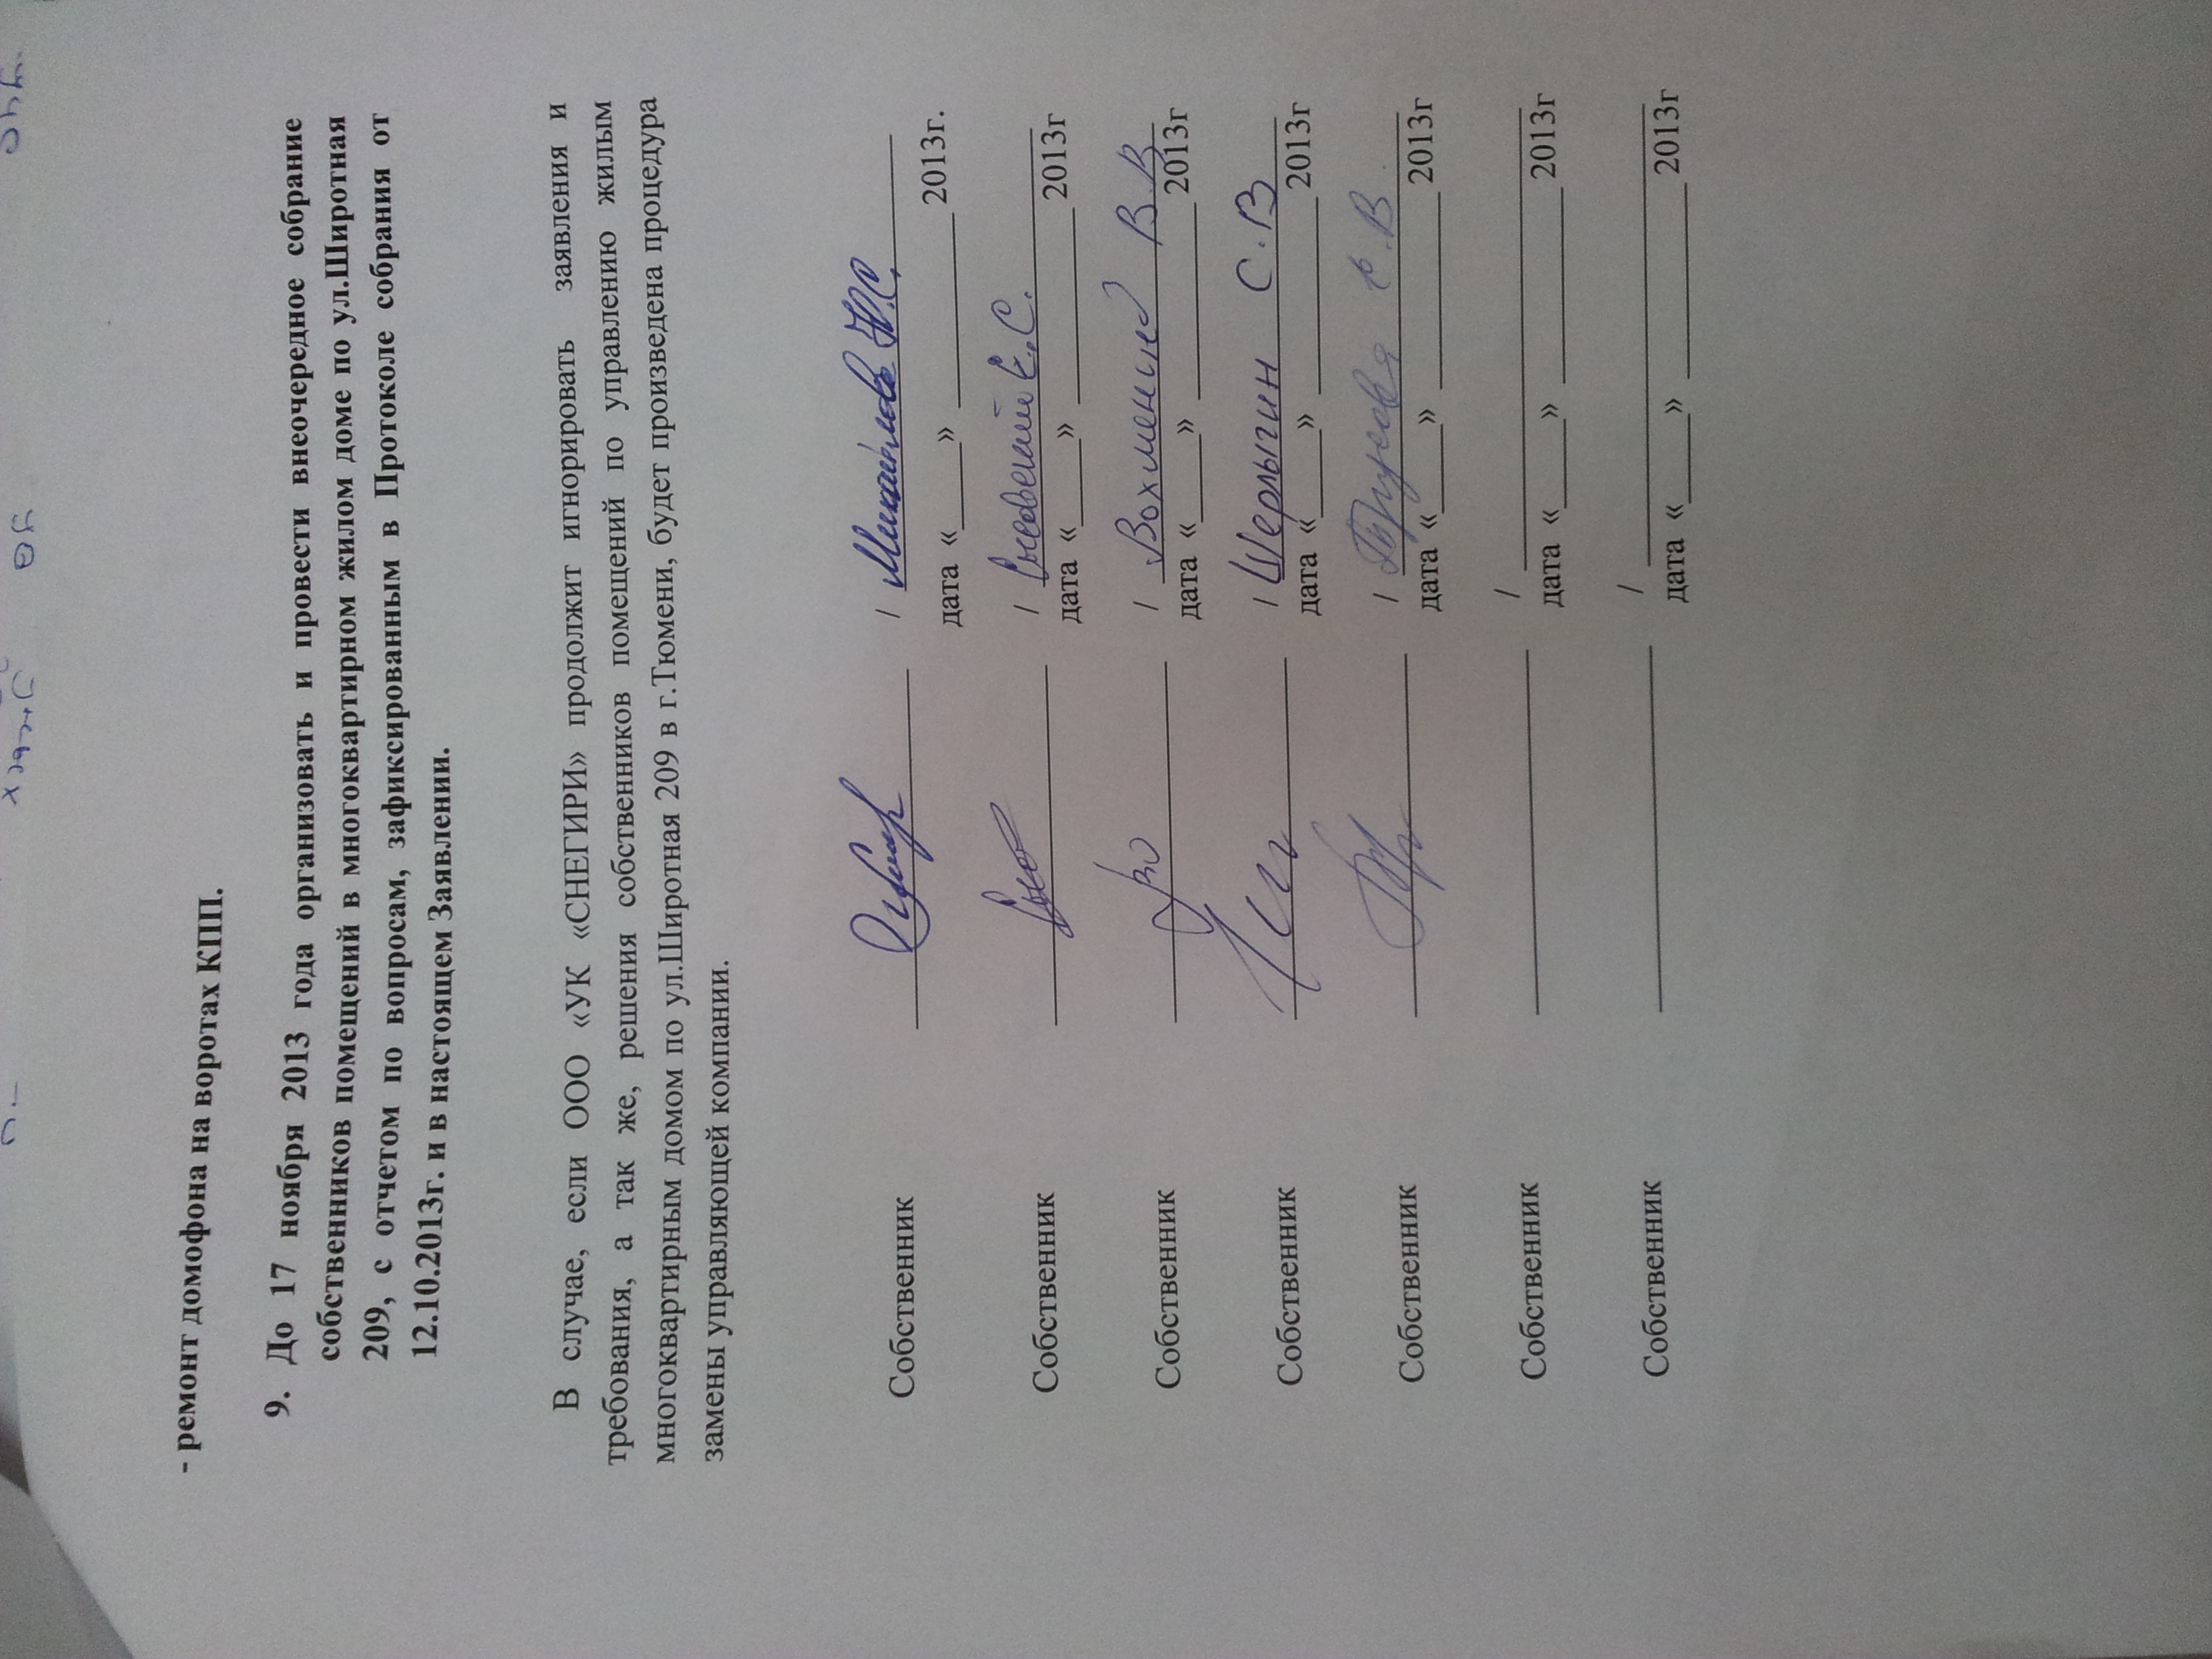 - ремонт домофона на воротах КПП.
9. До 17 ноября 2013 года организовать и провести внеочередное собрание
собственников помещений в многоквартирном жилом доме по ул.Широтная
209, с отчетом по вопросам, зафиксированным в Протоколе собрания от
12.10.2013г. и в настоящем Заявлении.
В случае, если ООО «УК «СНЕГИРИ» продолжит игнорировать заявления и
требования, а так же, решения собственников помещений по управлению жилым
многоквартирным домом по ул.Широтная 209 в г.Тюмени, будет произведена процедура
замены управляющей компании.
Собственник ____________ / Михайлова Н.С.
дата «____» __________ 2013г.
Собственник ____________ / Е.С.
дата «____» __________ 2013г
Собственник ____________ / Вохменина В.В
дата «____» __________ 2013г
Собственник ____________ / Шерлыгин С.В
дата «____» __________ 2013г
Собственник ____________ / .В.
дата «____» __________ 2013г
Собственник ____________ / ____________
дата «____» __________ 2013г
Собственник ____________ / ____________
дата «____» __________ 2013г